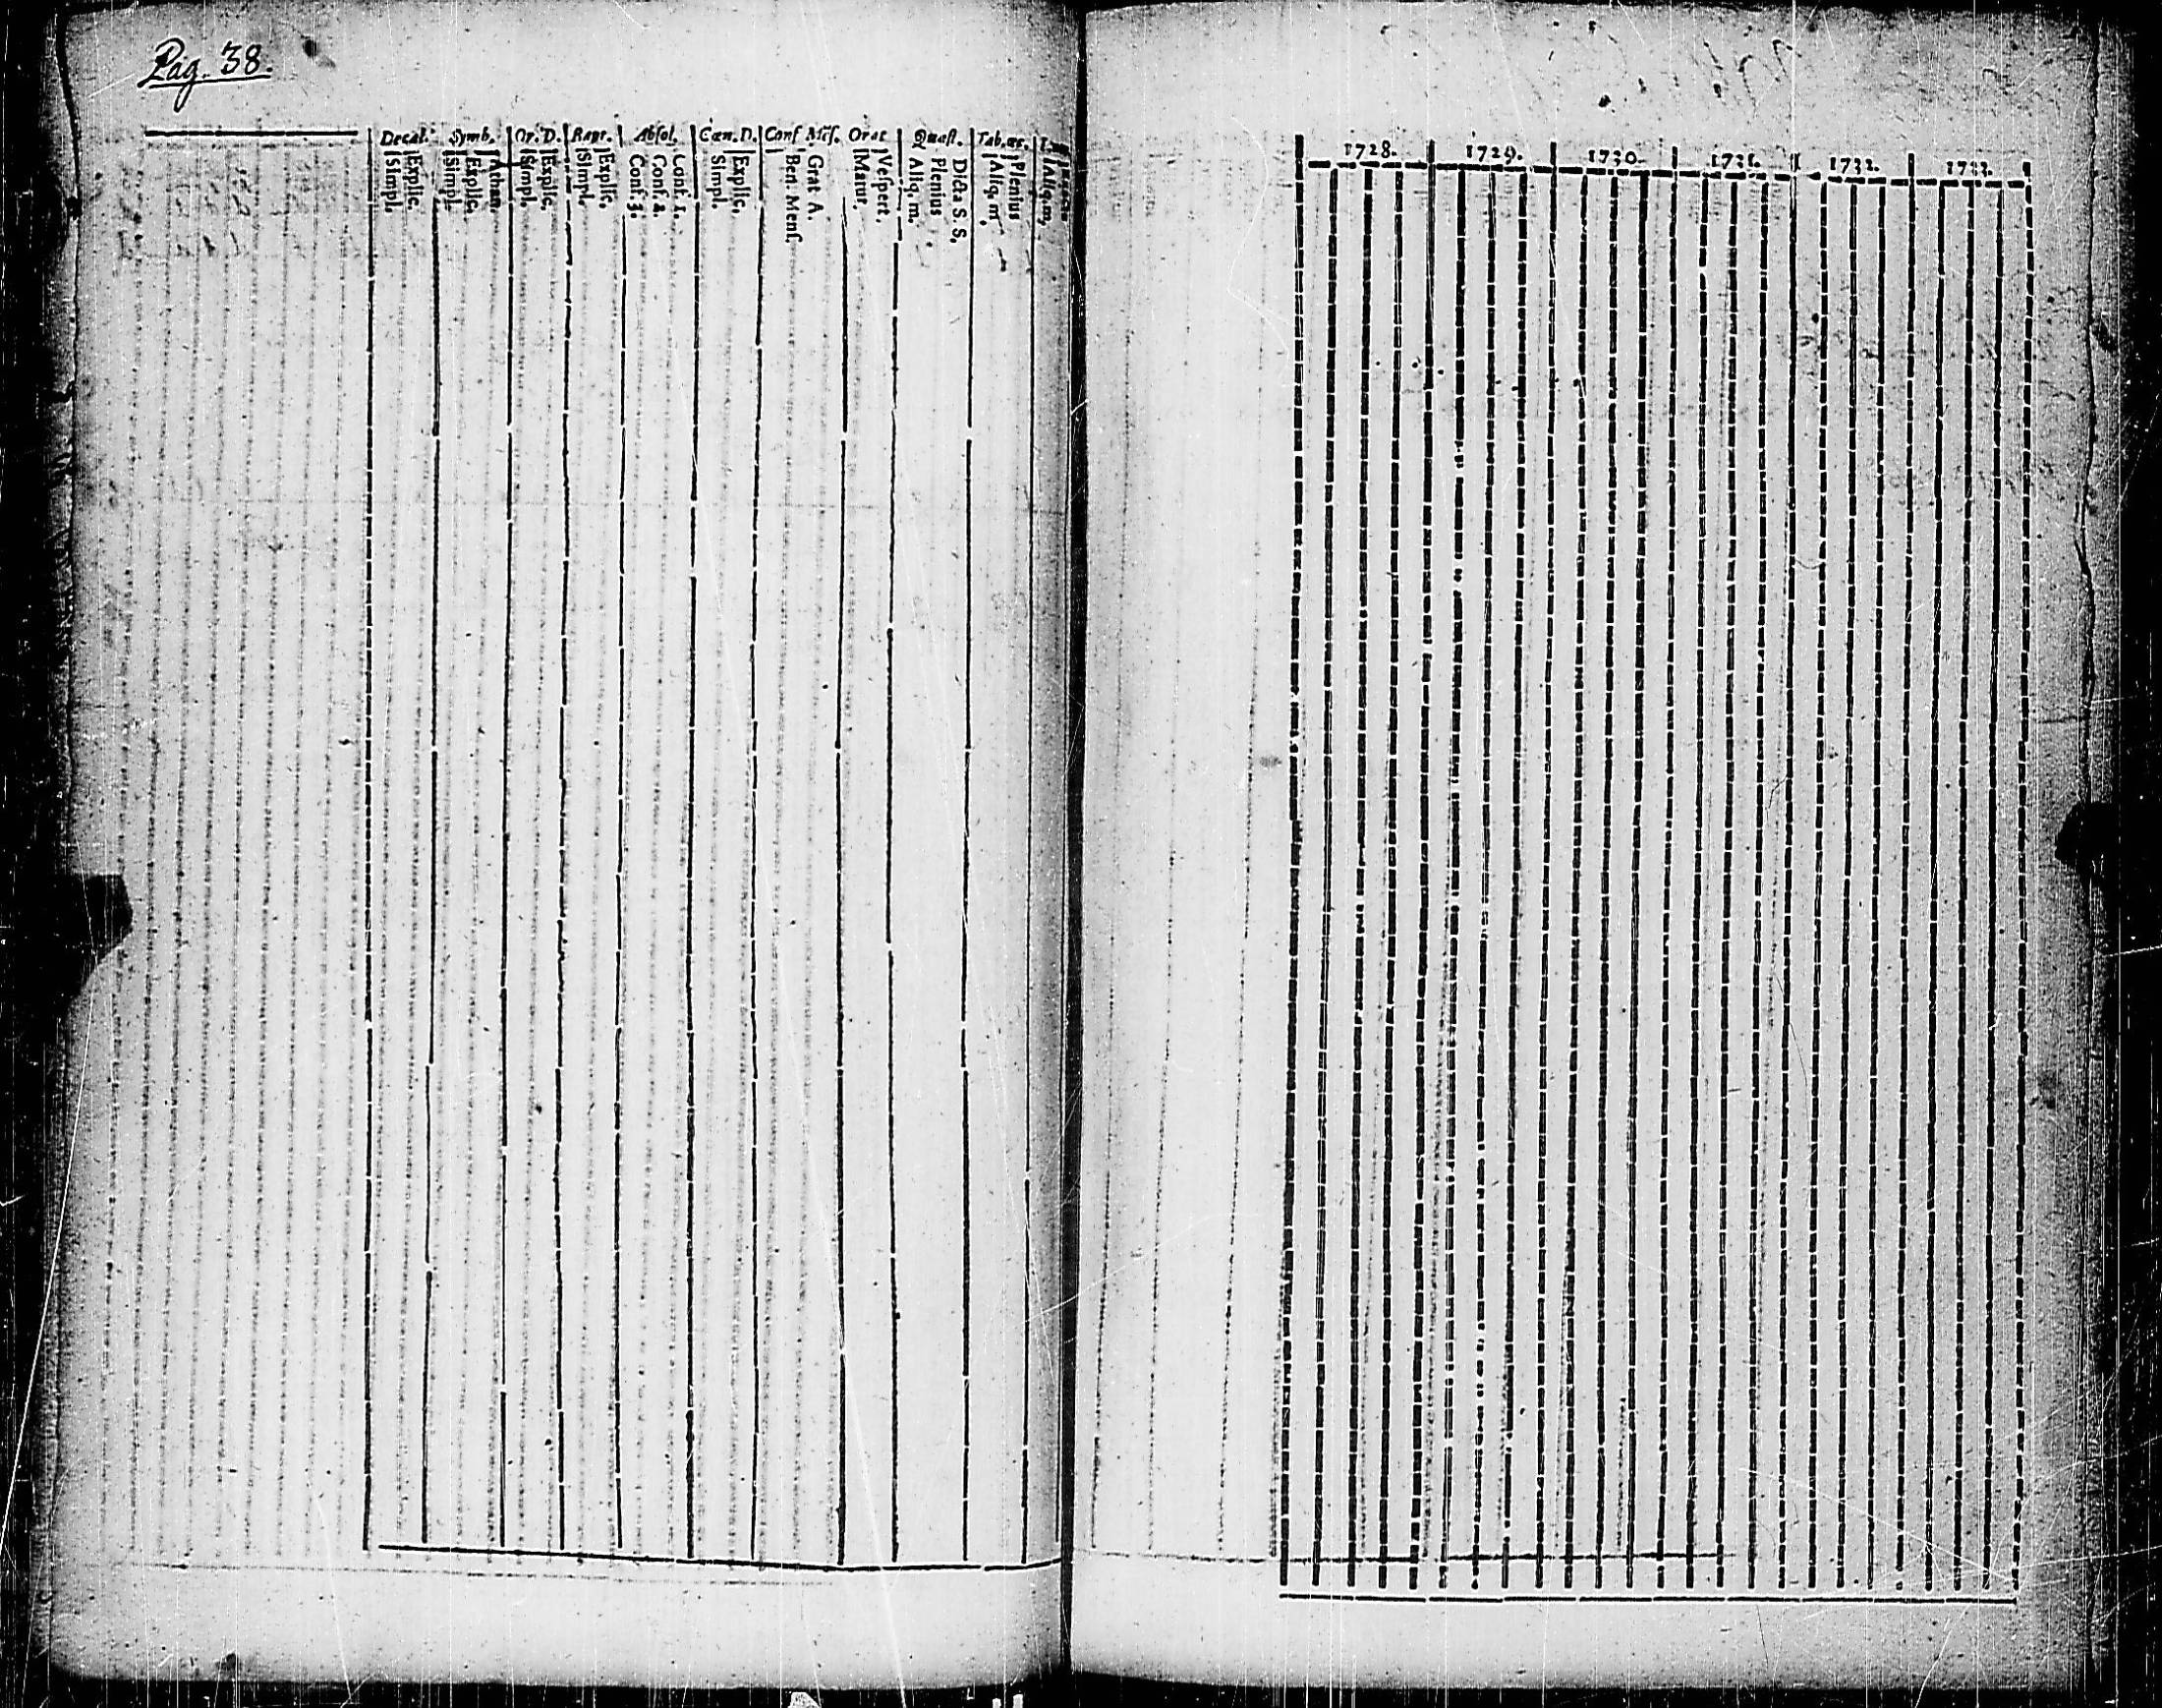 Pag. 38.
Decal. Symb. Or. D. Bapt. Absol. Cœn. D. Conf. Mes. Orat Quæst. Tab. œc.
Simpl. Explic. Simpl. Explic. Athan. Simpl. Explic. Simpl. Explic. Conf. 3. Conf. 2. Conf. 1. Simpl. Explic. Ben. Menſ. Grat A. Matur. Veſpert. Aliq. m. Plenius Dicta S. S. Aliq. m. Plenius Aliq. m.
1728. 1729. 1730. 1731. 1732. 1733.